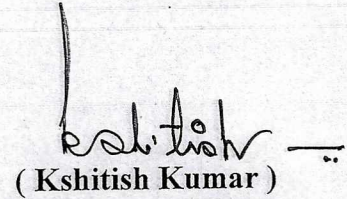 Kshitish
( Kshitish Kumar )